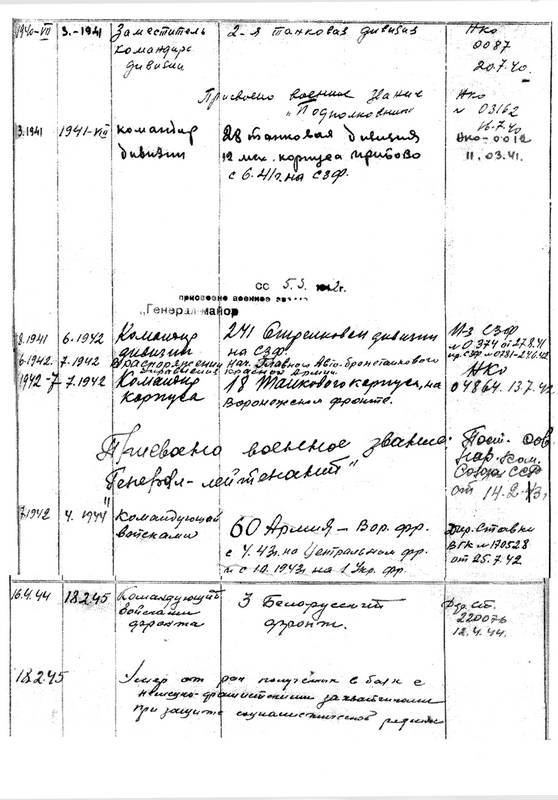 1940-VII 3.-1941 Заместитель 2-я танковая дивизия НКО
командира 0087
дивизии 20.7.40.
Присвоено военное звание НКО
"Подполковник" № 03162
16.7.40
3.1941 1941-VIII командир 28 танковая дивизия НКО-0012
дивизии 12 мех. корпуса прибово 11.03.41.
с 6.41г. на СЗФ.
сс 5.5. 1942г.
присвоено военное звание
"Генерал-майор
8.1941 6.1942 Командир 241 Стрелковой дивизии И-з СЗФ
дивизии на СЗФ. № 0374 от 27.8.41
6.1942. 7.1942 В распоряжении нач. Главного Авто-бронетанкового
управления Красной Армии НКО
1942-7 7.1942 Командир 18 Танкового корпуса, на 04864. 13.7.42
корпуса Воронежском фронте.
Присвоено военное звание Пост. Сов.
"Генерал-лейтенант" Нар. Ком.
Союза ССР
от 14.2.43г.
7.1942 4.1944 Командующий 60 Армия - Вор. фр. Дир. Ставки
войсками с 4.43г. на Центральном фр. ВГК № 170528
и с 10.1943г. на 1 Укр. фр. от 25.7.42
16.4.44 18.2.45 Командующий 3 Белорусский Дир. Ст.
войсками фронт. 220076
фронта 12.4.44.
18.2.45 Умер от ран полученых в боях с
немецко-фашистскими захватчиками
при защите социалистической родины